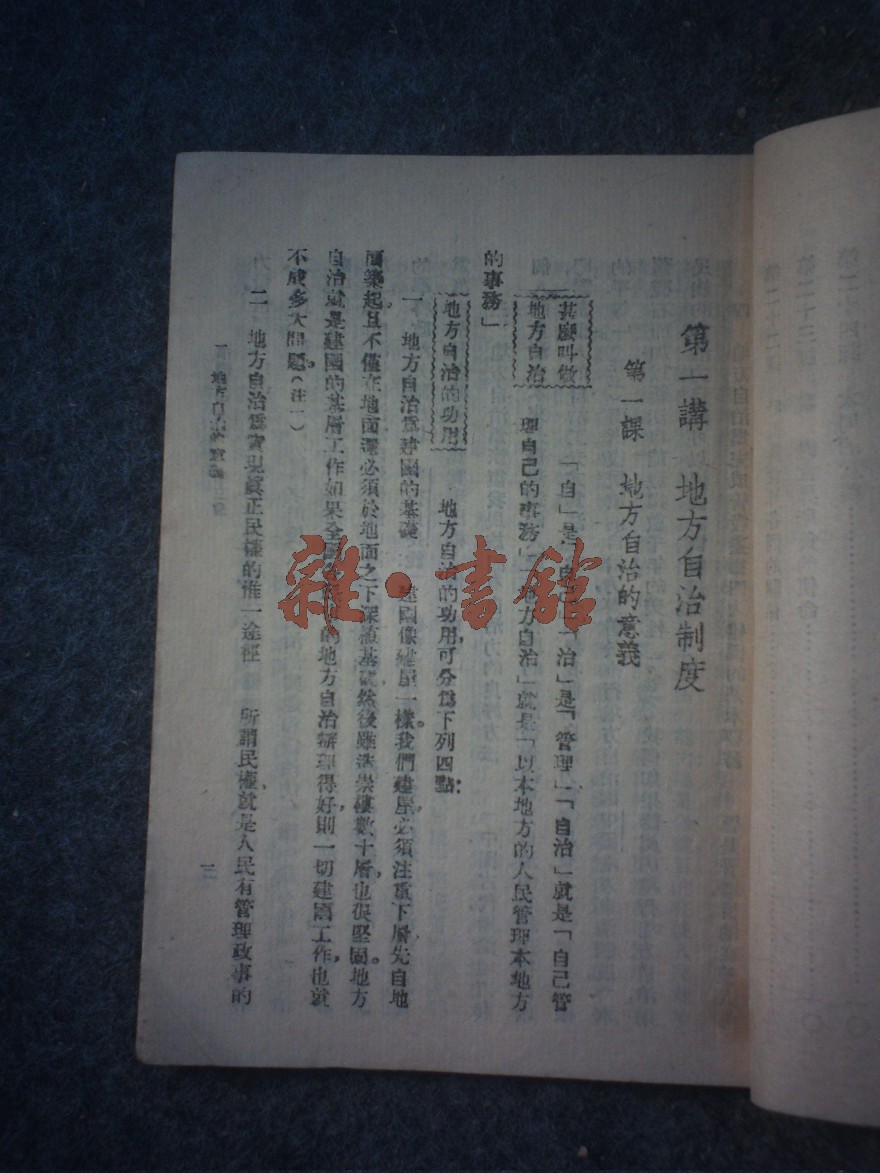 第一講　地方自治制度
第一課　地方自治的意義
甚麼叫做
地方自治
「自」是「自己」「治」是「管理」「自治」就是「自己管
理自己的事務」「地方自治」就是「以本地方的人民管理本地方
的事務」
地方自治的功用
地方自治的功用，可分爲下列四點：
一　地方自治爲建國的基礎　建國像建屋一樣。我們建屋，必須注重下層，先自地
面築起，且不僅在地面，還必須於地面之下深造基礎，然後雖造崇樓數十層，也很堅固。地方
自治就是建國的基層工作，如果全國的地方自治辦理得好，則一切建國工作，也就
不成多大問題。（注一）
二　地方自治爲實現眞正民權的惟一途徑　所謂民權，就是人民有管理政事的
一
雜·書館